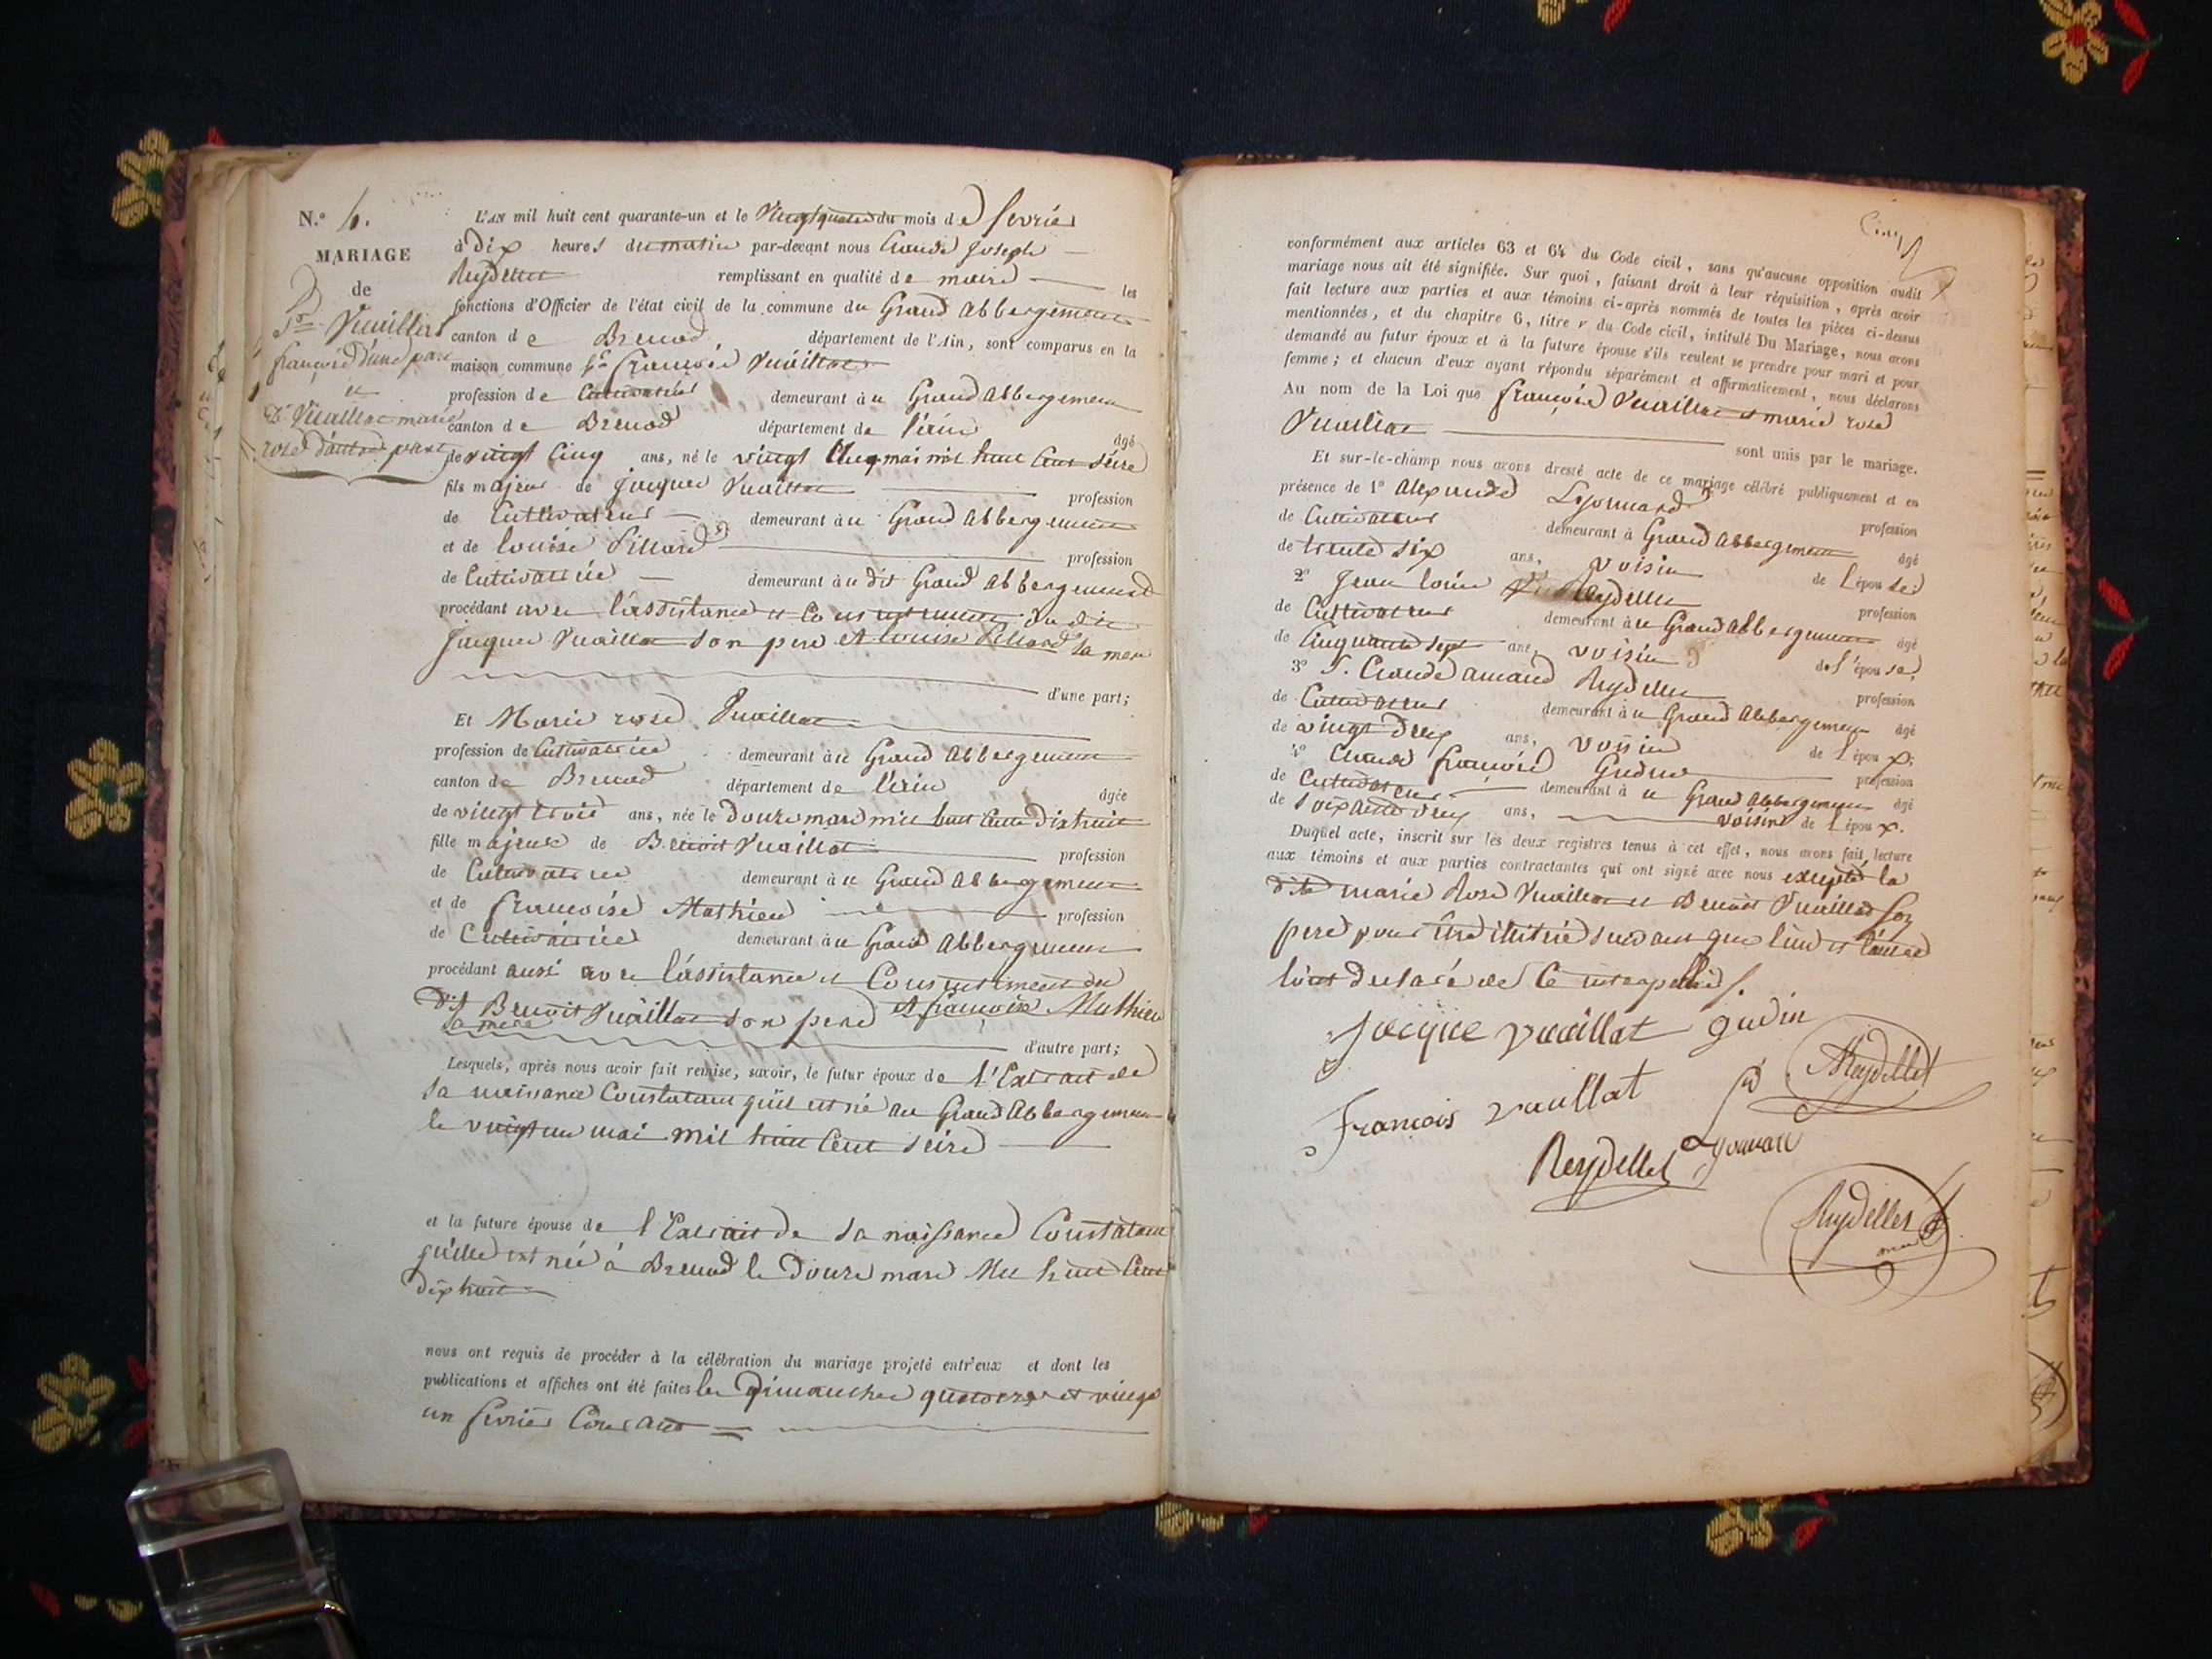 N.° 4.
MARIAGE
de
Sr. Vuaillat
françois d'une part
et
Dlle Vuaillat marie
rose d'autre part
L'AN mil huit cent quarante-un et le Vingt quatre du mois de fevrier
à Dix heures du matin par-devant nous Claude Joseph
Reydellet remplissant en qualité de maire les
fonctions d'Officier de l'état civil de la commune du Grand Abbergement
canton de Brenod département de l'Ain, sont comparus en la
maison commune Sr françois Vuaillat
profession de Cultivateur demeurant au Grand Abbergement
canton de Brenod département de l'ain âgé
de vingt Cinq ans, né le vingt mai mil huit Cent seize
fils majeur de Jacques Vuaillat profession
de Cultivateur demeurant au Grand Abbergement
et de louise Pillard profession
de Cultivatrice demeurant au dit Grand Abbergement
procédant avec l'assistance et Consentement du dit
Jacques Vuaillat son pere et Louise Pillard sa mere
d'une part;
Et Marie rose Vuaillat
profession de Cultivatrice demeurant au Grand Abbergement
canton de Brenod département de l'ain âgée
de vingt trois ans, née le Douze mars mil huit Cent Dix huit
fille majeure de Benoit Vuaillat profession
de Cultivateur demeurant au Grand Abbergement
et de françoise Mathieu profession
de Cultivatrice demeurant au Grand Abbergement
procédant aussi avec l'assistance et Consentement du
Dit Benoit Vuaillat son pere et françoise Mathieu
sa mere
d'autre part;
Lesquels, après nous avoir fait remise, savoir, le futur époux de l'Extrait de
sa naissance Constatant qu'il est né au Grand Abbergement
le vingt un mai mil huit Cent seize
et la future épouse de l'Extrait de sa naissance Constatant
qu'elle est née à Brenod le Douze mars Mil huit Cent
dix huit
nous ont requis de procéder à la célébration du mariage projeté entr'eux et dont les
publications et affiches ont été faites les Dimanches quatorze et vingt
un fevrier Courant
Cinq
conformément aux articles 63 et 64 du Code civil, sans qu'aucune opposition audit
mariage nous ait été signifiée. Sur quoi, faisant droit à leur réquisition, après avoir
fait lecture aux parties et aux témoins ci-après nommés de toutes les pièces ci-dessus
mentionnées, et du chapitre 6, titre v du Code civil, intitulé Du Mariage, nous avons
demandé au futur époux et à la future épouse s'ils veulent se prendre pour mari et pour
femme; et chacun d'eux ayant répondu séparément et affirmativement, nous déclarons
Au nom de la Loi que françois Vuaillat et marie rose
Vuaillat sont unis par le mariage.
Et sur-le-champ nous avons dressé acte de ce mariage célébré publiquement et en
présence de 1° Alexandre Lyonnard profession
de Cultivateur demeurant à Grand Abbergement âgé
de trente six ans, voisin de l'épouse;
2° Jean louis Reydellet profession
de Cultivateur demeurant au Grand Abbergement âgé
de Cinquante sept ans, voisin de l'épouse,
3° S. Claude amand Reydellet profession
de Cultivateur demeurant au Grand Abbergement âgé
de vingt Deux ans, voisin de l'époux;
4° Claude françois Gudin profession
de Cultivateur demeurant à u Grand Abbergement âgé
de soixante deux ans, voisins de l'époux.
Duquel acte, inscrit sur les deux registres tenus à cet effet, nous avons fait lecture
aux témoins et aux parties contractantes qui ont signé avec nous excepté la
dite marie Rose Vuaillat et Benoit Vuaillat son
pere pour être illitéré suivant que l'un et l'autre
l'ont declaré de Ce interpellés.
Jacque vuaillat gudin
Reydellet
francois vuaillat
Reydellet Lyonnard
Reydellet